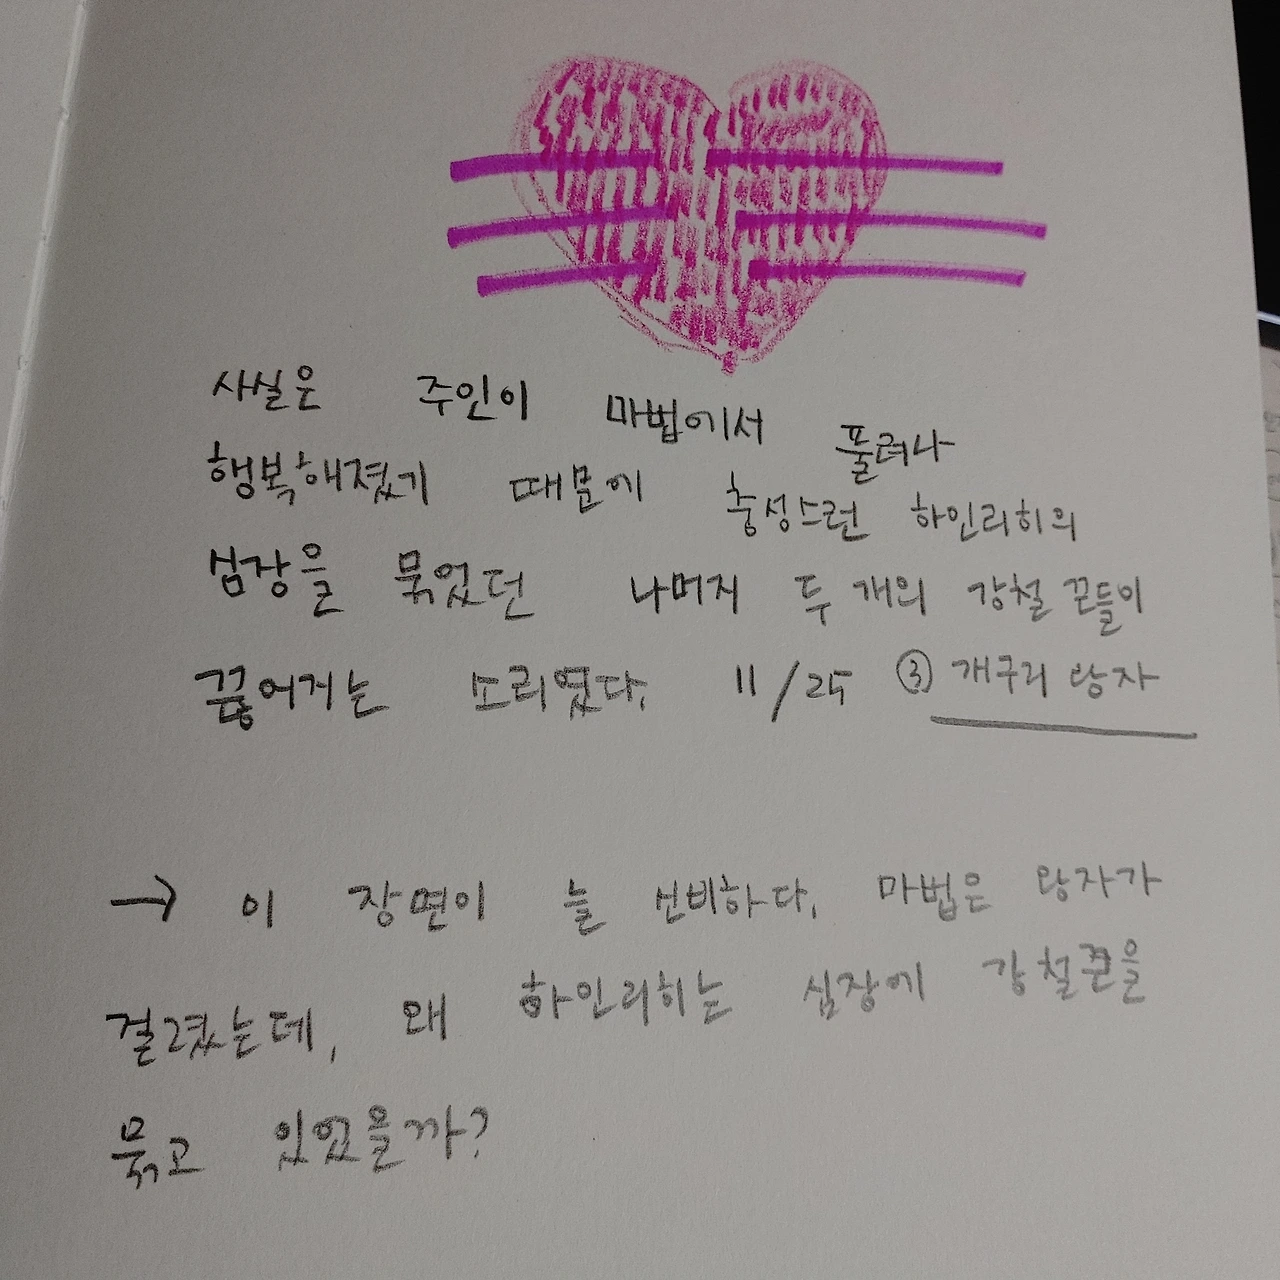 사실은 주인이 마법에서 풀려나
행복해졌기 때문에 충성스런 하인리히의
심장을 묶었던 나머지 두 개의 강철 끈들이
끊어지는 소리였다. 11/25 ③ 개구리 왕자
→ 이 장면이 늘 신비하다. 마법은 왕자가
걸렸는데, 왜 하인리히는 심장에 강철끈을
묶고 있었을까?